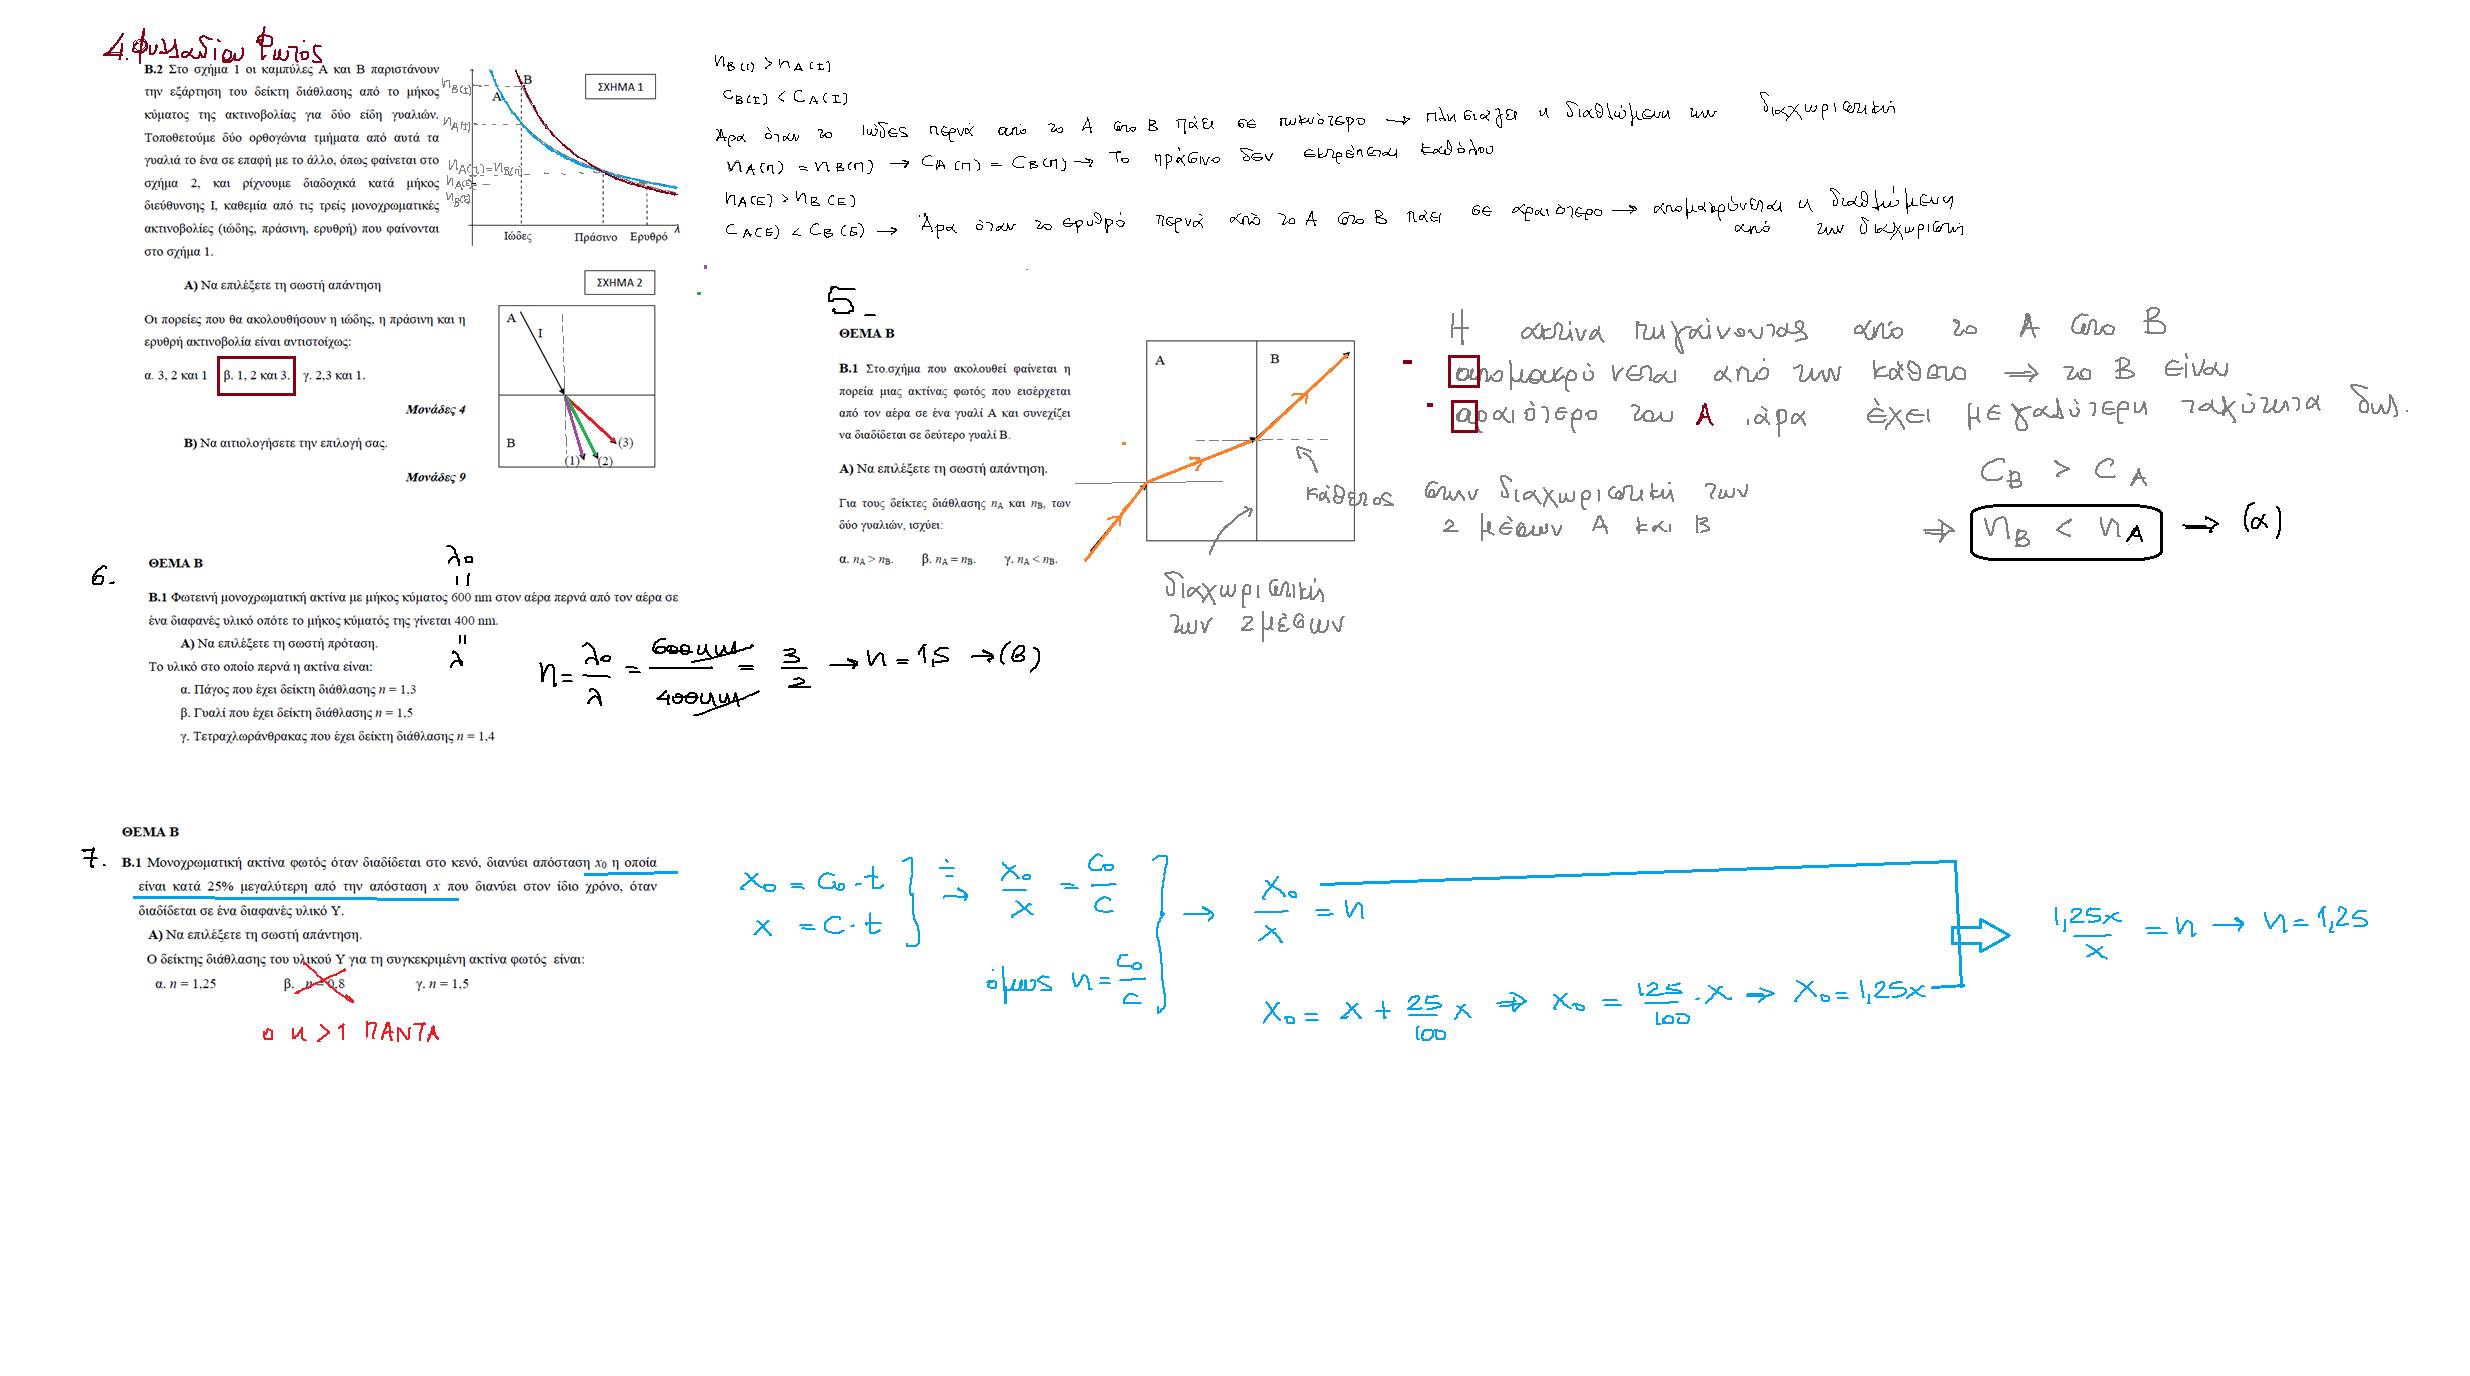 4. Φυλλαδίου Φωτός
Β.2 Στο σχήμα 1 οι καμπύλες Α και Β παριστάνουν
την εξάρτηση του δείκτη διάθλασης από το μήκος
κύματος της ακτινοβολίας για δύο είδη γυαλιών.
Τοποθετούμε δύο ορθογώνια τμήματα από αυτά τα
γυαλιά το ένα σε επαφή με το άλλο, όπως φαίνεται στο
σχήμα 2, και ρίχνουμε διαδοχικά κατά μήκος
διεύθυνσης Ι, καθεμία από τις τρείς μονοχρωματικές
ακτινοβολίες (ιώδης, πράσινη, ερυθρή) που φαίνονται
στο σχήμα 1.
Α) Να επιλέξετε τη σωστή απάντηση
Οι πορείες που θα ακολουθήσουν η ιώδης, η πράσινη και η
ερυθρή ακτινοβολία είναι αντιστοίχως:
α. 3, 2 και 1 β. 1, 2 και 3. γ. 2,3 και 1.
Μονάδες 4
Β) Να αιτιολογήσετε την επιλογή σας.
Μονάδες 9
ΣΧΗΜΑ 1
Α
Β
nB(I)
nA(I)
nA(Π)=nB(Π)
nA(E)
nB(E)
Ιώδες Πράσινο Ερυθρό λ
ΣΧΗΜΑ 2
Α
Ι
Β
(1) (2) (3)
nB(I) > nA(I)
CB(I) < CA(I)
Άρα όταν το Ιώδες περνά από το Α στο Β πάει σε πυκνότερο → πλησιάζει η διαθλώμενη την διαχωριστική
nA(Π) = nB(Π) → CA(Π) = CB(Π) → Το πράσινο δεν εκτρέπεται καθόλου
nA(E) > nB(E)
CA(E) < CB(E) → Άρα όταν το ερυθρό περνά από το Α στο Β πάει σε αραιότερο → απομακρύνεται η διαθλώμενη
από την διαχωριστική
5.
ΘΕΜΑ Β
Β.1 Στο.σχήμα που ακολουθεί φαίνεται η
πορεία μιας ακτίνας φωτός που εισέρχεται
από τον αέρα σε ένα γυαλί Α και συνεχίζει
να διαδίδεται σε δεύτερο γυαλί Β.
Α) Να επιλέξετε τη σωστή απάντηση.
Για τους δείκτες διάθλασης nΑ και nΒ, των
δύο γυαλιών, ισχύει:
α. nΑ > nΒ. β. nΑ = nΒ. γ. nΑ < nΒ.
Α
Β
κάθετος στην διαχωριστική των
2 μέσων Α και Β
διαχωριστική
των 2 μέσων
Η ακτίνα πηγαίνοντας από το Α στο Β
απομακρύνεται από την κάθετο ⇒ το Β είναι
αραιότερο του Α ,άρα έχει μεγαλύτερη ταχύτητα δηλ.
CB > CA
⇒ nB < nA → (α)
6.
ΘΕΜΑ Β
λ0
=
Β.1 Φωτεινή μονοχρωματική ακτίνα με μήκος κύματος 600 nm στον αέρα περνά από τον αέρα σε
ένα διαφανές υλικό οπότε το μήκος κύματός της γίνεται 400 nm.
=
λ
Α) Να επιλέξετε τη σωστή πρόταση.
Το υλικό στο οποίο περνά η ακτίνα είναι:
α. Πάγος που έχει δείκτη διάθλασης n = 1,3
β. Γυαλί που έχει δείκτη διάθλασης n = 1,5
γ. Τετραχλωράνθρακας που έχει δείκτη διάθλασης n = 1,4
n = λ0/λ = 600nm/400nm = 3/2 → n = 1,5 → (β)
ΘΕΜΑ Β
7.
Β.1 Μονοχρωματική ακτίνα φωτός όταν διαδίδεται στο κενό, διανύει απόσταση x0 η οποία
είναι κατά 25% μεγαλύτερη από την απόσταση x που διανύει στον ίδιο χρόνο, όταν
διαδίδεται σε ένα διαφανές υλικό Υ.
Α) Να επιλέξετε τη σωστή απάντηση.
Ο δείκτης διάθλασης του υλικού Υ για τη συγκεκριμένη ακτίνα φωτός είναι:
α. n = 1,25 β. n = 0,8 γ. n = 1,5
ο n > 1 ΠΑΝΤΑ
x0 = C0 · t
x = C · t
÷ → x0/x = C0/C
όμως n = C0/C
→ x0/x = n
x0 = x + 25/100 x ⇒ x0 = 125/100 · x ⇒ x0 = 1,25x
1,25x/x = n → n = 1,25